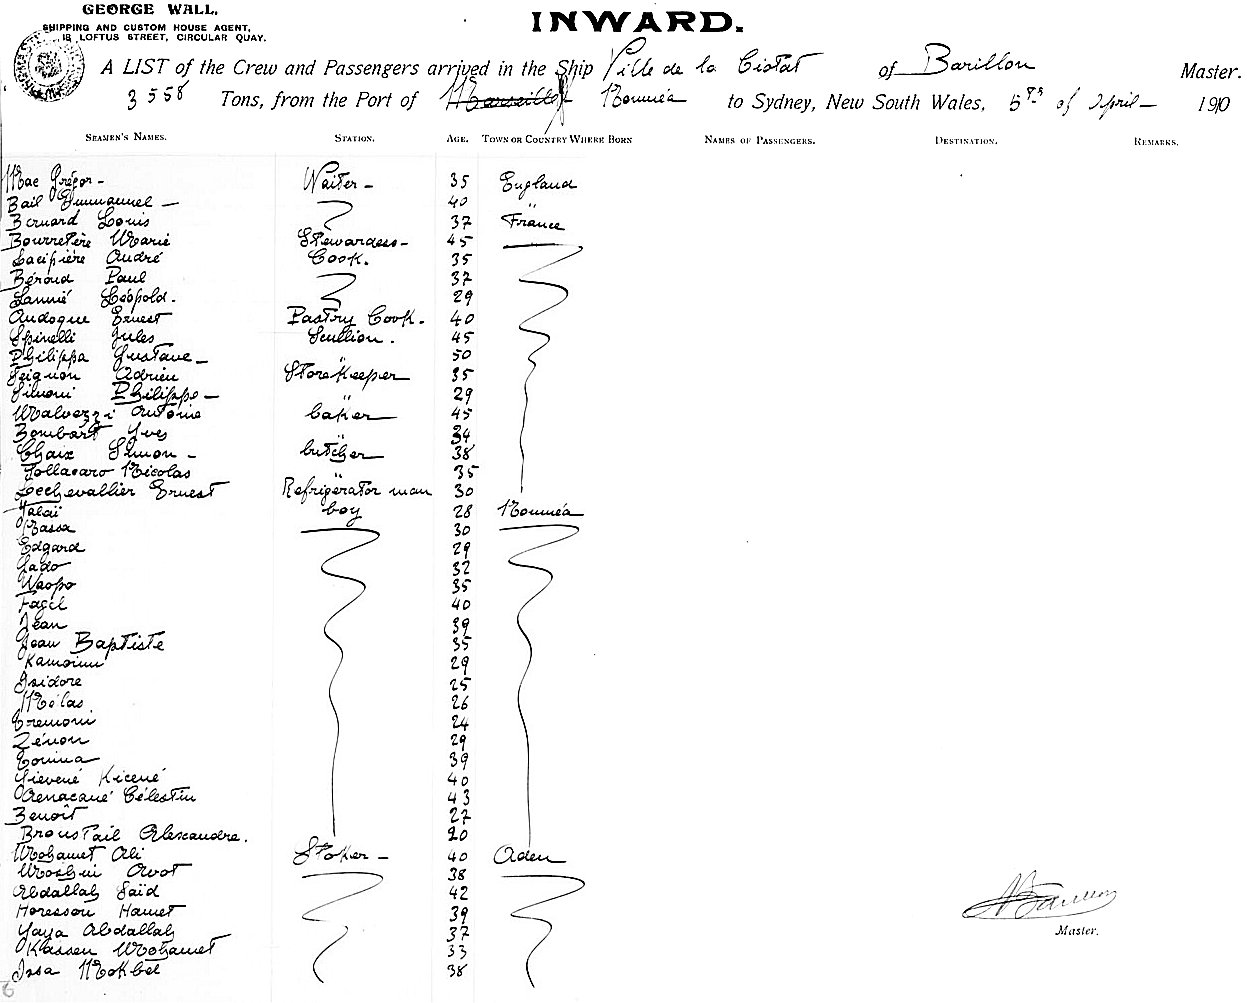 GEORGE WALL,
SHIPPING AND CUSTOM HOUSE AGENT,
18 LOFTUS STREET, CIRCULAR QUAY.
INWARD.
A LIST of the Crew and Passengers arrived in the Ship Ville de la Ciotat of Barillon Master.
3558 Tons, from the Port of Marseille Nouméa to Sydney, New South Wales, 5th of April 1910
SEAMEN'S NAMES. STATION. AGE. TOWN OR COUNTRY WHERE BORN NAMES OF PASSENGERS. DESTINATION. REMARKS.
Mac Grégor - Waiter - 35 England
Bail Emmanuel - 40 "
Bernard Louis 37 France
Bourretère Marie Stewardess - 45
Lacipière André Cook. 35
Béroud Paul 37
Lannié Léopold. 29
Audogue Ernest Pastry Cook. 40
Spinelli Jules Scullion. 45
Philippa Gustave - " 50
Feignon Adrien Storekeeper 35
Simoni Philippe - " 29
Malvezzi Antoine baker 45
Bombart Yves " 34
Chaix Simon - butcher 38
Tollacaro Nicolas " 35
Lechevallier Ernest Refrigerator man 30
Talaï boy 28 Nouméa
Bassa 30
Edgard 29
Lado 32
Waopo 35
Fagil 40
Jean 39
Jean Baptiste 35
Kamoinu 29
Isidore 25
Mélas 26
Eremoni 24
Zénon 29
39
Sievené Kicené 40
Célestin 43
Benoît 27
Broustail Alexandre. 20
Mohamet Ali Stoker - 40 Aden
38
Abdallah Saïd 42
Horesson Hamet 39
Yaya Abdallah 37
Kassen Mohamet 33
Issa Mokbel 38
Barillon
Master.